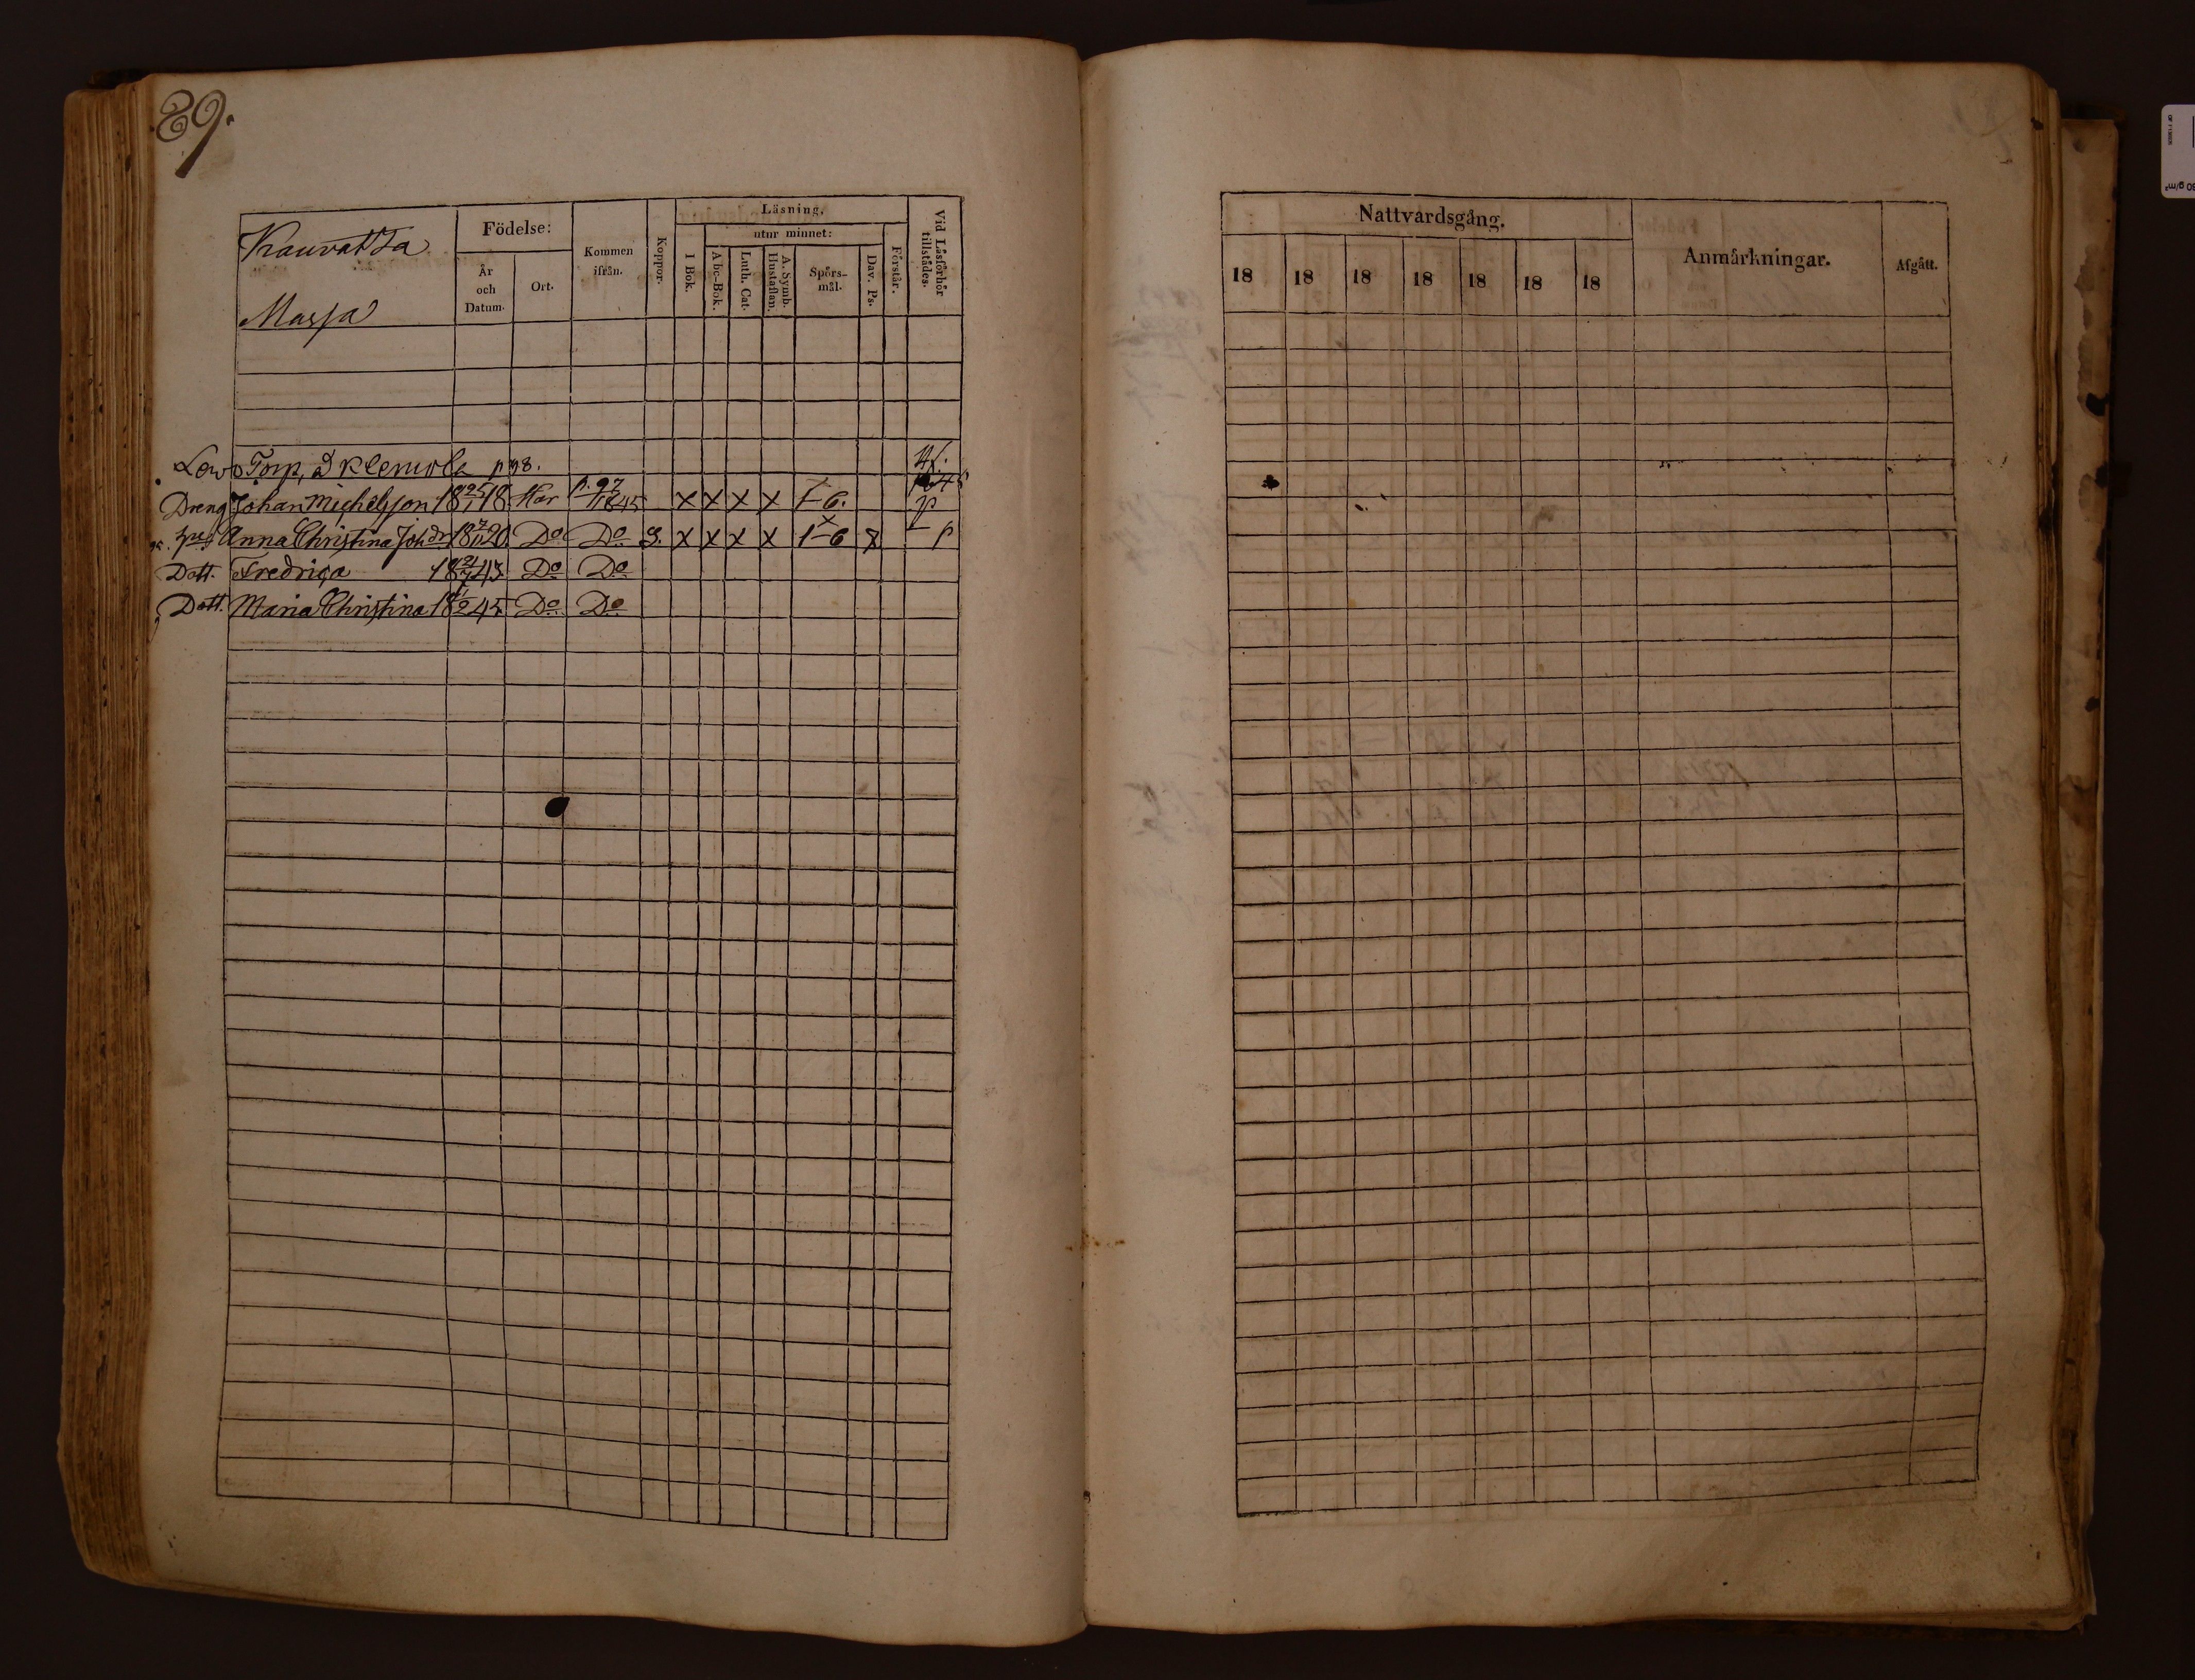 89.
Kauvatta
Massa
Födelse:
År och Datum.
Ort.
Kommen ifrån.
Koppor.
Läsning,
utur minnet:
I Bok.
Abc-Bok.
Luth. Cat.
A. Symb. Hustaflan.
Spörs-mål.
Dav. Ps.
Förstår.
Vid Läsförhör tillstädes.
Torp, å Klemola p 98.
Dreng Johan Michelsson 18 25/1 18. Har p. 97 1845 x x x x 1-6. p
Anna Christina Joh dr 18 20. Do Do S. x x x x 1-6 p
Dott. Fredrica 18 43. Do Do
Dott. Maria Christina 18 45. Do Do
Nattvardsgång.
18 18 18 18 18 18 18
Anmärkningar.
Afgått.